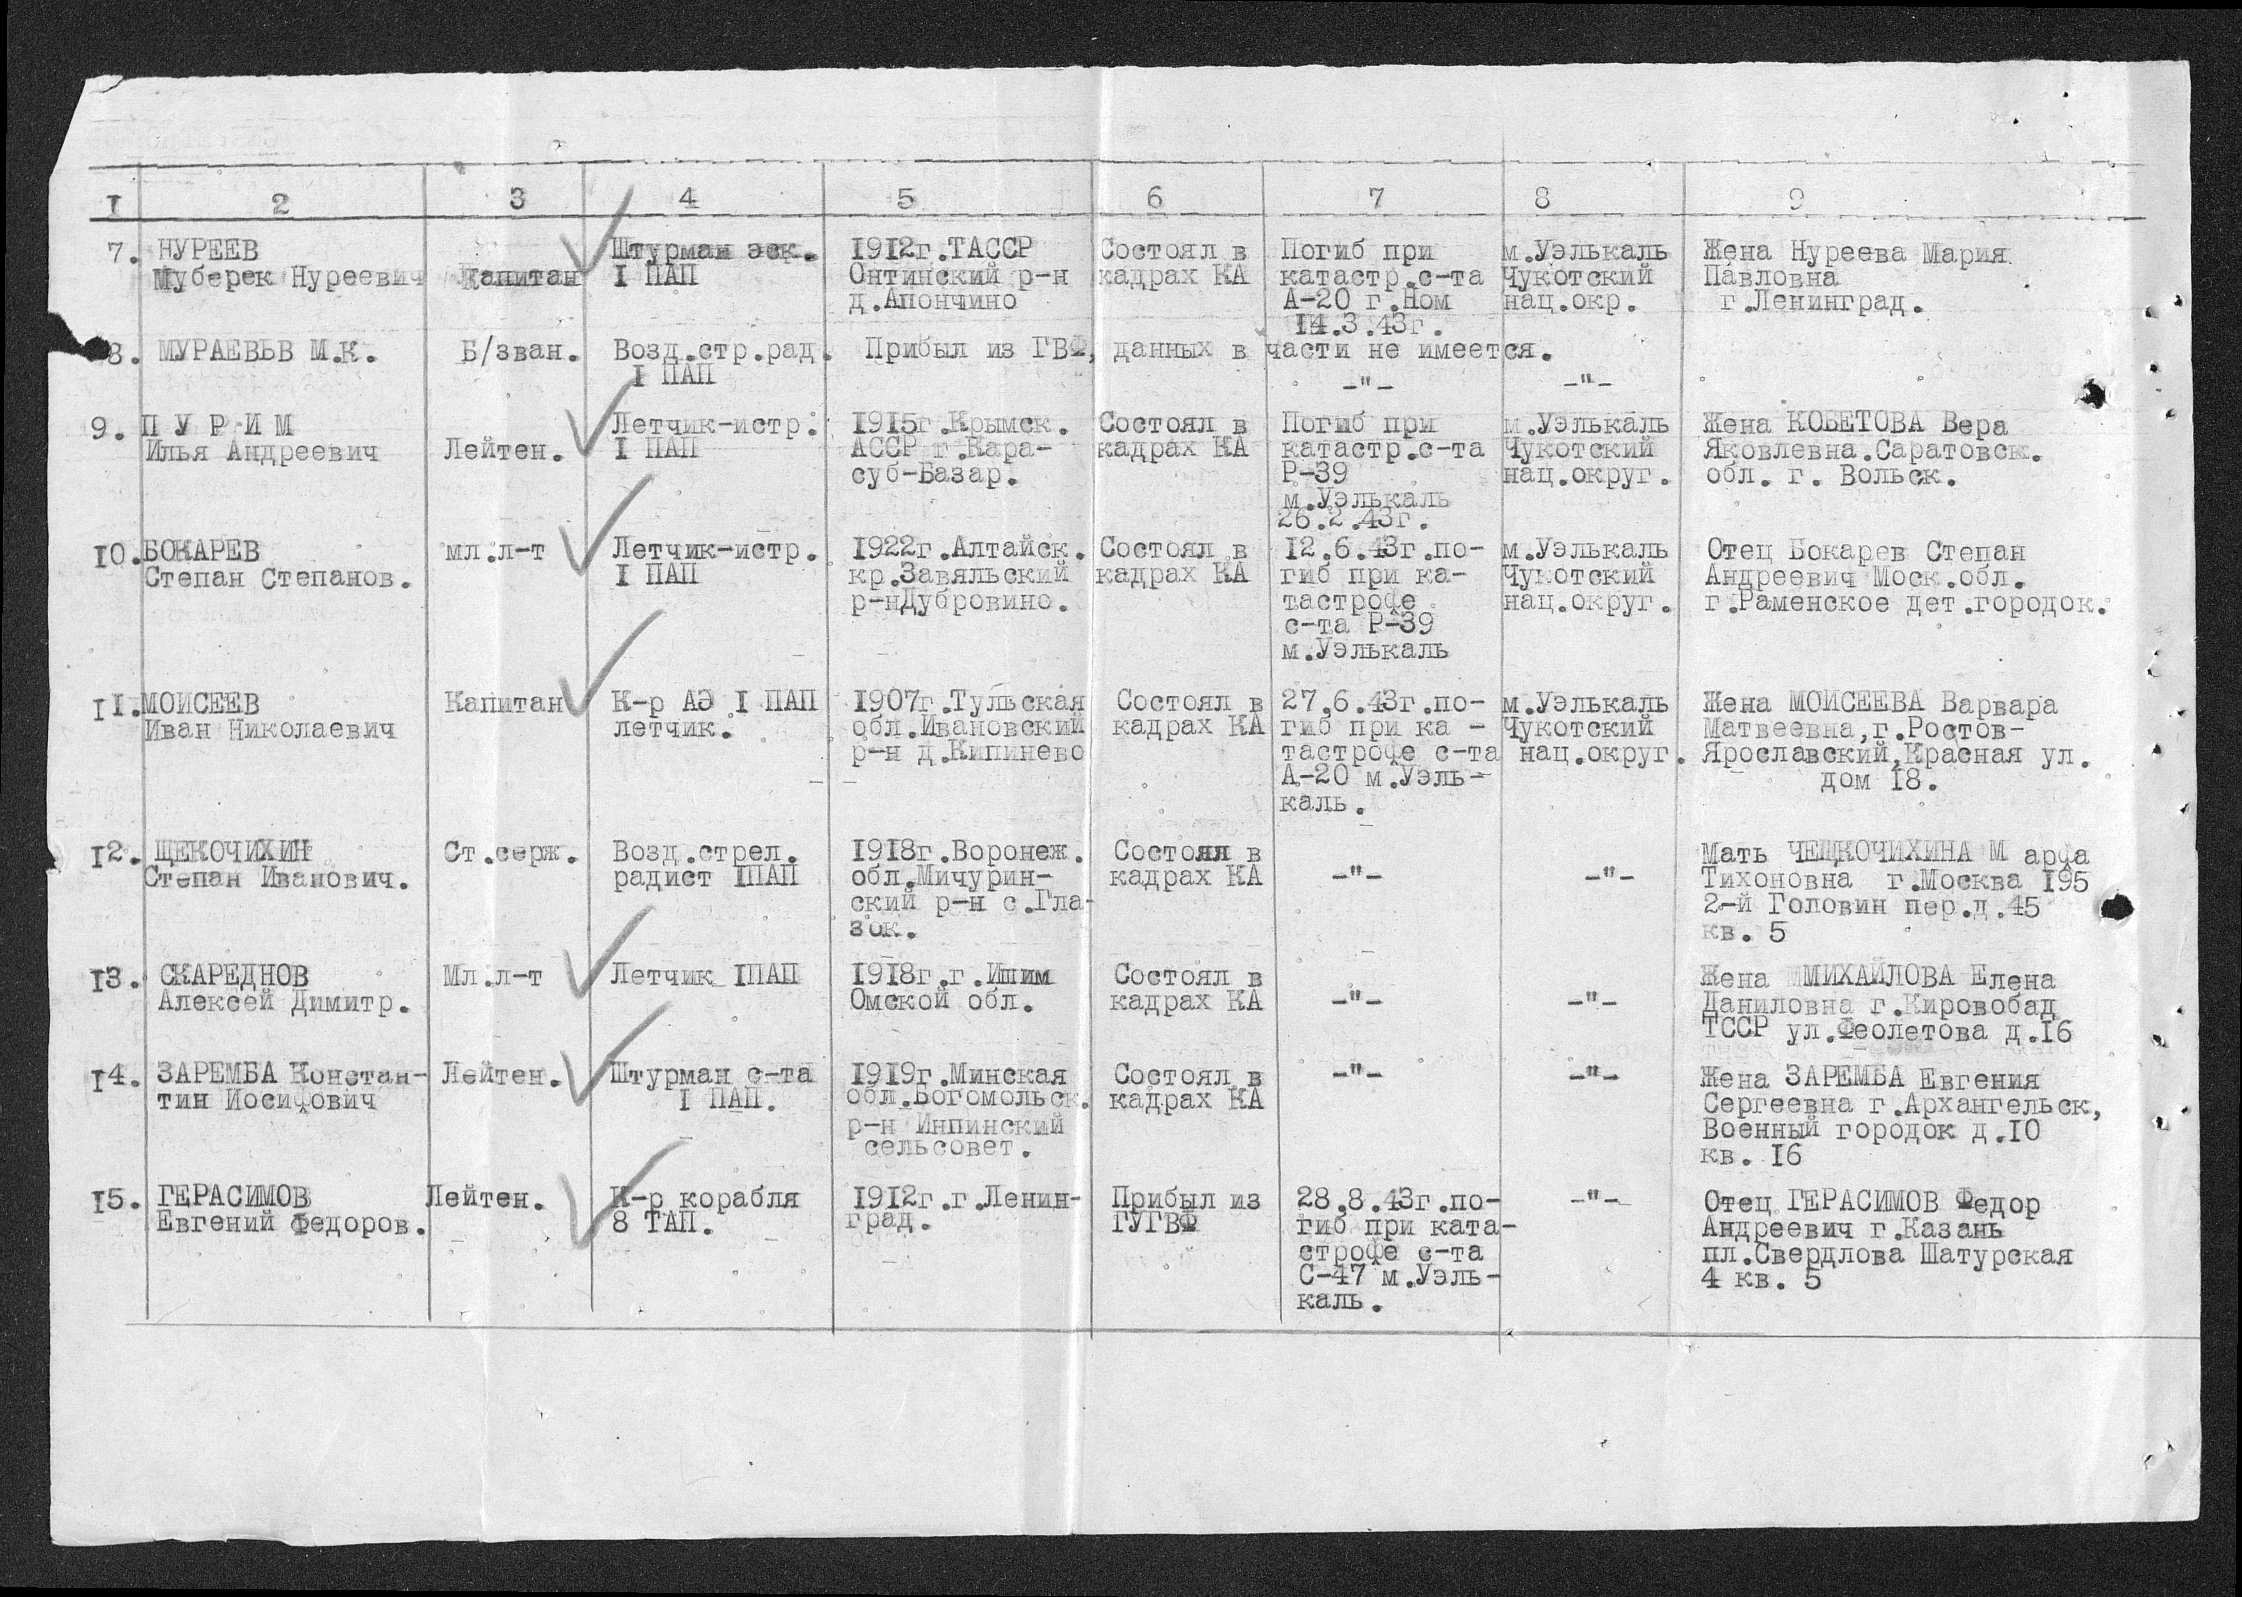 I 2 3 4 5 6 7 8 9
7. НУРЕЕВ
Муберек Нуреевич
Капитан
Штурман эск.
I ПАП
1912г.ТАССР
Онтинский р-н
д.Апончино
Состоял в
кадрах КА
Погиб при
катастр.с-та
А-20 г.Ном
14.3.43г.
м.Уэлькаль
Чукотский
нац.окр.
Жена Нуреева Мария
Павловна
г.Ленинград.
8. МУРАЕВЬВ М.К.
Б/зван.
Возд.стр.рад.
I ПАП
Прибыл из ГВФ, данных в части не имеется.
-"-
-"-
9. П У Р И М
Илья Андреевич
Лейтен.
Летчик-истр.
I ПАП
1915г.Крымск.
АССР г.Кара-
суб-Базар.
Состоял в
кадрах КА
Погиб при
катастр.с-та
Р-39
м.Уэлькаль
26.2.43г.
м.Уэлькаль
Чукотский
нац.округ.
Жена КОБЕТОВА Вера
Яковлевна.Саратовск.
обл. г. Вольск.
10. БОКАРЕВ
Степан Степанов.
мл.л-т
Летчик-истр.
I ПАП
1922г.Алтайск.
кр.Завяльский
р-нДубровино.
Состоял в
кадрах КА
12.6.43г.по-
гиб при ка-
тастрофе
с-та Р-39
м.Уэлькаль
м.Уэлькаль
Чукотский
нац.округ.
Отец Бокарев Степан
Андреевич Моск.обл.
г.Раменское дет.городок.
11. МОИСЕЕВ
Иван Николаевич
Капитан
К-р АЭ I ПАП
летчик.
1907г.Тульская
обл.Ивановский
р-н д.Кипинево
Состоял в
кадрах КА
27.6.43г.по-
гиб при ка -
тастрофе с-та
А-20 м.Уэль-
каль.
м.Уэлькаль
Чукотский
нац.округ.
Жена МОИСЕЕВА Варвара
Матвеевна,г.Ростов-
Ярославский,Красная ул.
дом 18.
12. ЩЕКОЧИХИН
Степан Иванович.
Ст.серж.
Возд.стрел.
радист IПАП
1918г.Воронеж.
обл.Мичурин-
ский р-н с.Гла-
зок.
Состоял в
кадрах КА
-"-
-"-
Мать ЧЕЩКОЧИХИНА М арфа
Тихоновна г.Москва 195
2-й Головин пер.д.45
кв. 5
13. СКАРЕДНОВ
Алексей Димитр.
Мл.л-т
Летчик IПАП
1918г.г.Ишим
Омской обл.
Состоял в
кадрах КА
-"-
-"-
Жена МИХАЙЛОВА Елена
Даниловна г.Кировобад
ТССР ул.Феолетова д.16
14. ЗАРЕМБА Констан-
тин Иосифович
Лейтен.
Штурман с-та
I ПАП.
1919г.Минская
обл.Богомольск.
р-н Инпинский
сельсовет.
Состоял в
кадрах КА
-"-
-"-
Жена ЗАРЕМБА Евгения
Сергеевна г.Архангельск,
Военный городок д.10
кв. 16
15. ГЕРАСИМОВ
Евгений Федоров.
Лейтен.
К-р корабля
8 ТАП.
1912г.г.Ленин-
град.
Прибыл из
ГУГВФ
28.8.43г.по-
гиб при ката-
строфе с-та
С-47 м.Уэль-
каль.
-"-
Отец ГЕРАСИМОВ Федор
Андреевич г.Казань
пл.Свердлова Шатурская
4 кв. 5